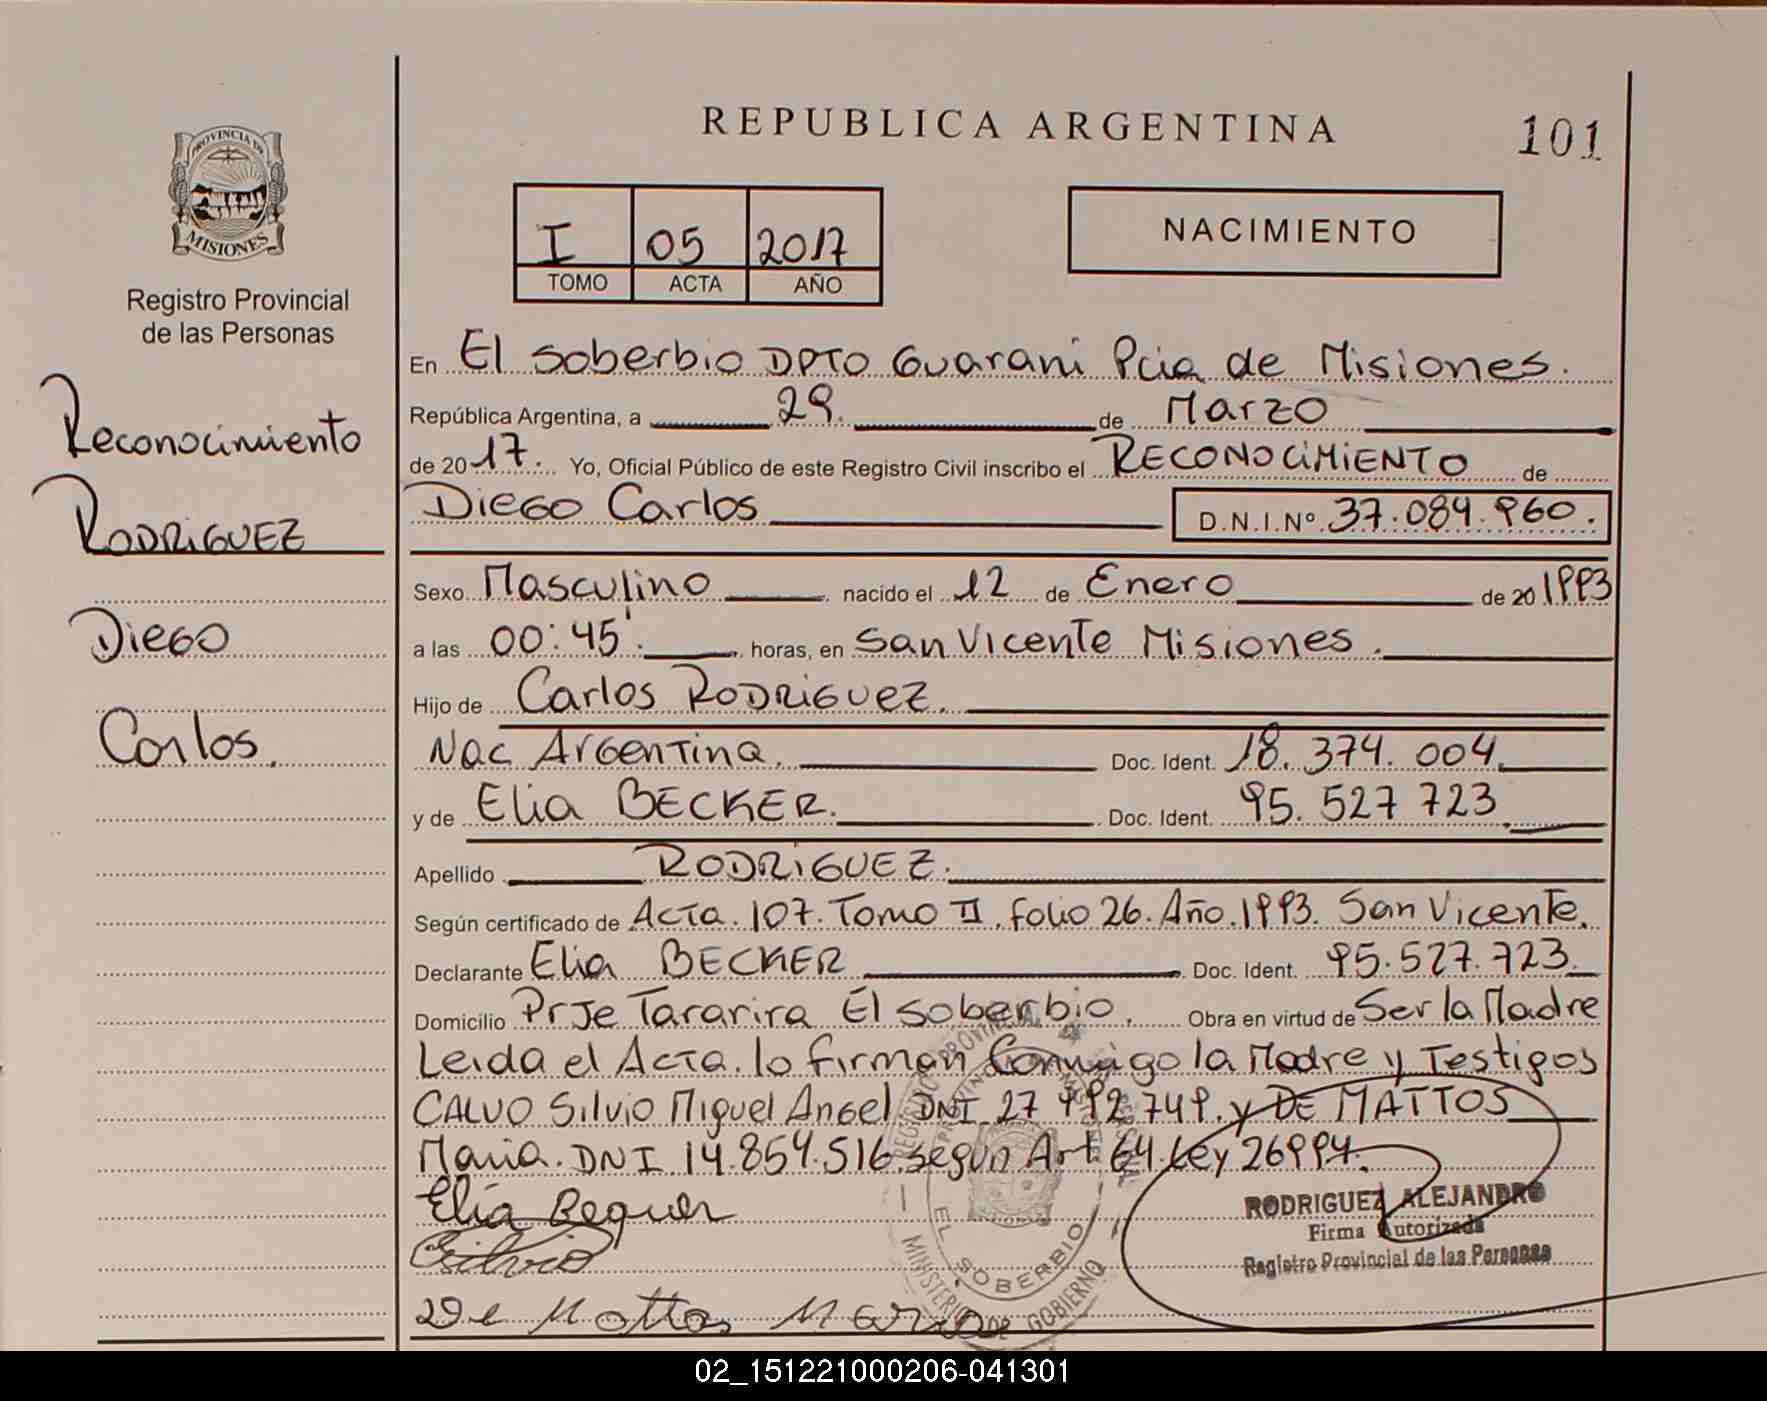 REPUBLICA ARGENTINA
101
PROVINCIA DE
MISIONES
Registro Provincial
de las Personas
Reconocimiento
RODRIGUEZ
Diego
Carlos.
I 05 2017
TOMO ACTA AÑO
NACIMIENTO
En El Soberbio DPTO Guarani Pcia de Misiones.
República Argentina, a 29. de Marzo
de 2017. Yo, Oficial Público de este Registro Civil inscribo el RECONOCIMIENTO de
Diego Carlos D.N.I.Nº 37.084.960.
Sexo Masculino nacido el 12 de Enero de 20 1993
a las 00:45'. horas, en San Vicente Misiones.
Hijo de Carlos RODRIGUEZ.
Nac Argentina. Doc. Ident. 18.374.004.
y de Elia BECKER. Doc. Ident. 95.527 723.
Apellido RODRIGUEZ.
Según certificado de Acta. 107. Tomo II. Folio 26. Año. 1993. San Vicente.
Declarante Elia BECKER Doc. Ident. 95.527.723.
Domicilio PrJe Tararira El Soberbio. Obra en virtud de Ser la Madre
Leida el Acta. lo firman Conmigo la Madre y Testigos
CALVO Silvio Miguel Angel DNI 27 992 749. y DE MATTOS
Maria. DNI 14.854.516 según Art 64. Ley 26994.
Elia Bequer
Silvio
De Mattos Maria
EL SOBERBIO
MINISTERIO DE GOBIERNO
RODRIGUEZ ALEJANDRO
Firma Autorizada
Registro Provincial de las Personas
02_151221000206-041301